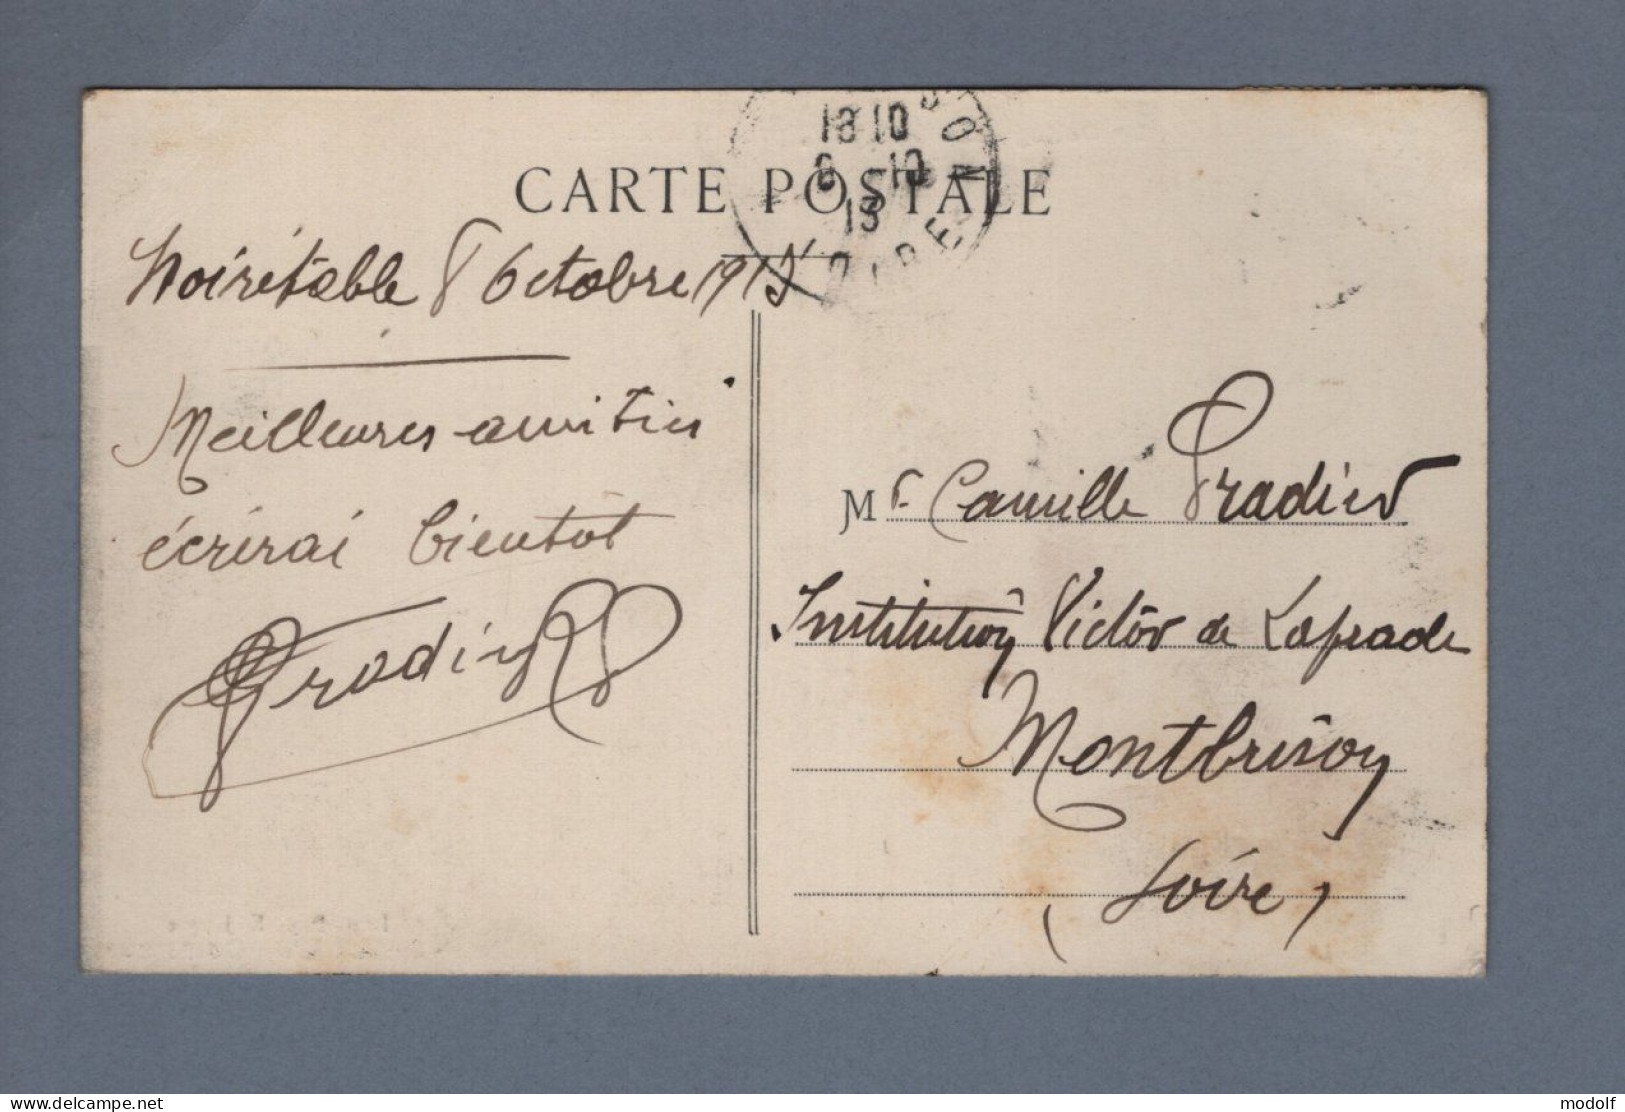 CARTE POSTALE
18 10
8 10
13
LOIRE
Noirétable 8 Octobre 1913
Meilleures amitiés
écrirai bientôt
Pradier
Mr Camille Pradier
Institution Victor de Laprade
Montbrison
(Loire)
delcampe.net
modolf